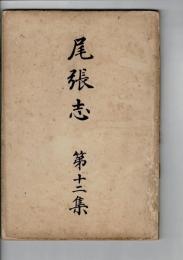 尾張志
第十二集